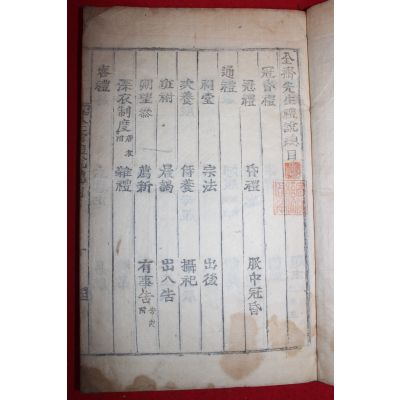 全齋先生禮說總目
冠昏禮
冠禮 昏禮 服中冠昏
通禮
祠堂 宗法 出後
侍養 攝祀
班祔 晨謁 出入告
朔望參 薦新 有事告
深衣制度 雜禮
喪禮